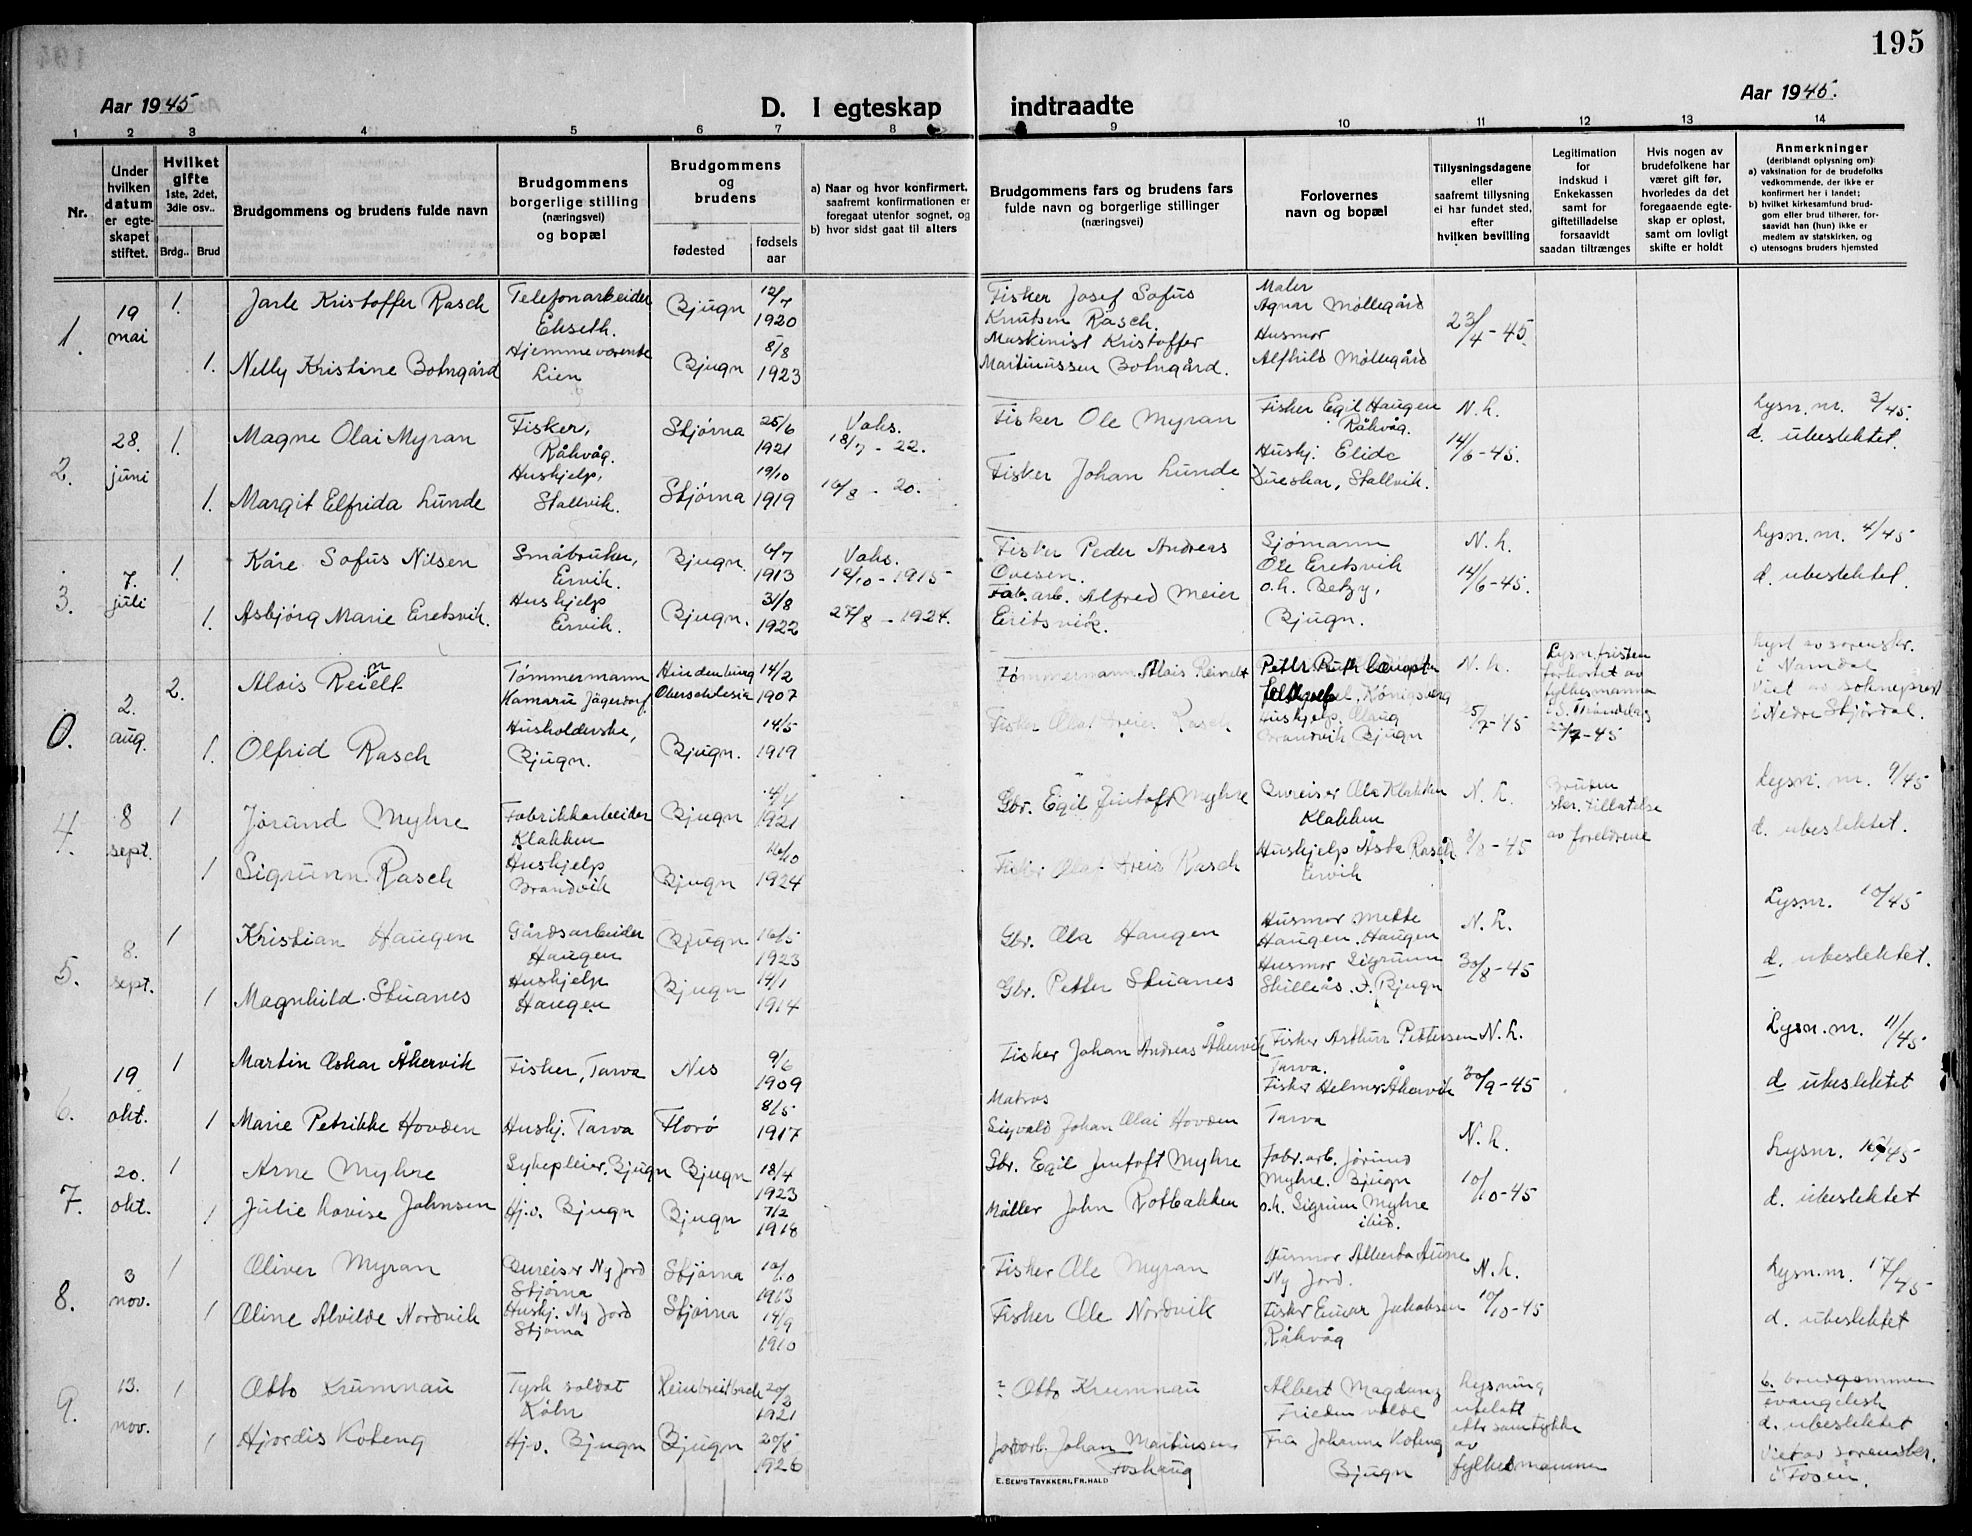 195
Aar 1945
D. I egteskap indtraadte
Aar 1945.
1 2 3 4 5 6 7 8 9 10 11 12 13 14
Nr.
Under hvilken datum er egteskapet stiftet.
Hvilket gifte
1ste, 2det, 3die osv..
Brdg.. Brud
Brudgommens og brudens fulde navn
Brudgommens borgerlige stilling (næringsvei) og bopæl
Brudgommens og brudens
fødested
fødsels aar
a) Naar og hvor konfirmert, saafremt konfirmationen er foregaat utenfor sognet, og
b) hvor sidst gaat til alters
Brudgommens fars og brudens fars fulde navn og borgerlige stillinger (næringsvei)
Forlovernes navn og bopæl
Tillysningsdagene eller saafremt tillysning ei har fundet sted, efter hvilken bevilling
Legitimation for indskud i Enkekassen samt for giftetilladelse forsaavidt saadan tiltrænges
Hvis nogen av brudefolkene har været gift før, hvorledes da det foregaaende egteskap er opløst, samt om lovligt skifte er holdt
Anmerkninger
(deriblandt oplysning om):
a) vaksination for de brudefolks vedkommende, der ikke er konfirmert her i landet;
b) hvilket kirkesamfund brudgom eller brud tilhører, forsaavidt han (hun) ikke er medlem av statskirken, og
c) utensogns bruders hjemsted
1. 19 mai
1. Jarle Kristoffer Rasch Telefonarbeider Ekseth. Bjugn 12/7 1920
Fisker Josef Sofus Knutsen Rasch. Maler Agnar Møllegård 23/4-45.
1. Nelly Kristine Botngård Hjemmeværende Lien Bjugn 8/8 1923
Maskinist Kristoffer Martinussen Botngård. Husmor Alfhild Møllegård
2. 28. juni
1. Magne Olai Myran Fisker, Råkvåg. Stjørna 25/6 1921 Vaks. 18/7 - 22.
Fisker Ole Myran Fisker Egil Haugen Råkvåg. N. k. 14/6-45. Lysn. nr. 3/45.
d. ubeslektet.
1. Margit Elfrida Lunde Hushjelp, Stallvik. Stjørna 19/10 1919 16/8 - 20.
Fisker Johan Lunde Hushj. Elide Dueskar, Stallvik.
3. 7. juli
1. Kåre Sofus Nilsen Småbruker, Ervik. Bjugn 6/7 1913 Vaks. 12/10-1915
Fisker Peder Andreas Ovesen. Sjømann Ole Eretsvik N. k. 14/6-45. Lysn. nr. 4/45
d. ubeslektet.
1. Asbjørg Marie Eretsvik. Hushjelp Ervik. Bjugn. 31/8 1922 27/8 - 1924.
Fab. arb. Alfred Meier Eritsvik. o.h. Betzy, Bjugn.
0. 2. aug.
2. Alois Reinelt Tømmermann Komarn Jägerdorf. Hindenburg Oberschlesia 14/2 1907
Tømmermann Alois Reinelt N. k. 5/7-45
Lysn. fristen forkortet av fylkesmannen i S. Trøndelag 21/7-45
Lyst av sorenskr. i Namdal
Viet av sokneprest i Nedre Stjørdal.
1. Olfrid Rasch Husholderske, Bjugn. Bjugn. 14/5 1919
Fisker Olaf Rasch Hushjelp Olaug Brandvik Bjugn
4. 8 sept.
1 Jørund Myhre Fabrikkarbeider Klakken Bjugn 4/4 1921
Gbr. Egil Jentoft Myhre Bureiser Ola Klakken Klakken N. k. 8/8-45
Bruden skr. tillatelse av foreldrene
Lysn. nr. 9/45
d. ubeslektet.
1 Sigrunn Rasch Hushjelp Brandvik Bjugn 16/10 1924
Fisker Olaf Rasch Hushjelp Åsta Rasch Ervik
5. 8. sept.
1 Kristian Haugen Gårdsarbeider Haugen Bjugn 16/5 1923
Gbr. Ola Haugen Husmor Mette Haugen. Haugen N. k. 30/8-45 Lysnr. 10/45
d. ubeslektet.
1 Magnhild Stuanes Hushjelp Haugen Bjugn 14/1 1914
Gbr. Petter Stuanes Husmor Sigrunn Skilleås. Bjugn
6. 19 okt.
1 Martin Oskar Åkervik Fisker, Tarva Nes 9/6 1909
Fisker Johan Andreas Åkervik Fisker Arthur Pettersen Tarva. N. k. 30/9-45 Lysn. nr. 11/45
d ubeslektet
1 Marie Petrikke Hovden Hushj. Tarva Florø 8/5 1917
Matros Sigvald Johan Olai Hovden Fisker Helmer Åkervik Tarva
7. 20. okt.
1 Arne Myhre Sykepleier, Bjugn Bjugn 18/4 1923
Gbr. Egil Jentoft Myhre Fabr. arb. Jørund Myhre. Bjugn N. k. 10/10-45 Lysnr. 16/45
d. ubeslektet
1 Julie Lovise Johnsen Hj.v. Bjugn Bjugn 7/2 1918
Møller John Rotbakken o.h. Sigrun Myhre ibid.
8. 3 nov.
1 Oliver Myran Bureiser Ny Jord Stjørna Stjørna 10/10 1913
Fisker Ole Myran Husmor Alberta Aune Ny Jord. N. k. 10/10-45 Lysn. nr. 17/45
d. ubeslektet
1 Oline Alvilde Nordvik Hushj. Ny Jord Stjørna Stjørna 14/9 1910
Fisker Ole Nordvik Fisker Einar Jakobsen Råkvåg
9. 13. nov.
1 Otto Krumnau Tysk soldat Køln Reinbreitbach 20/2 1921
? Otto Krumnau Albert Magdanz Friedenvalde
Lysning utelatt etter samtykke av fylkesmannen
b. brudgommen evangelisk
d. ubeslektet
Viet av sorenskr. i Fosen.
1 Hjørdis Koteng Hj.v. Bjugn Bjugn 20/8 1926
Jordarb. Johan Martinsen Foshaug Fra Johanna Koteng Bjugn
E. SEM'S TRYKKERI, FR.HALD